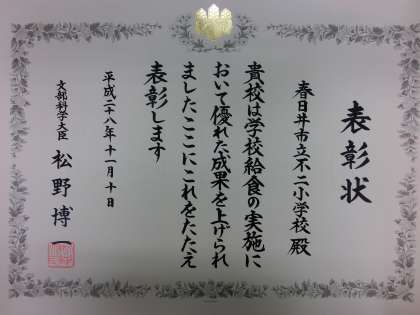 表彰状
春日井市立不二小学校 殿
貴校は学校給食の実施に
おいて優れた成果を上げられ
ましたここにこれをたたえ
表彰します
平成二十八年十一月十日
文部科学大臣 松野博一